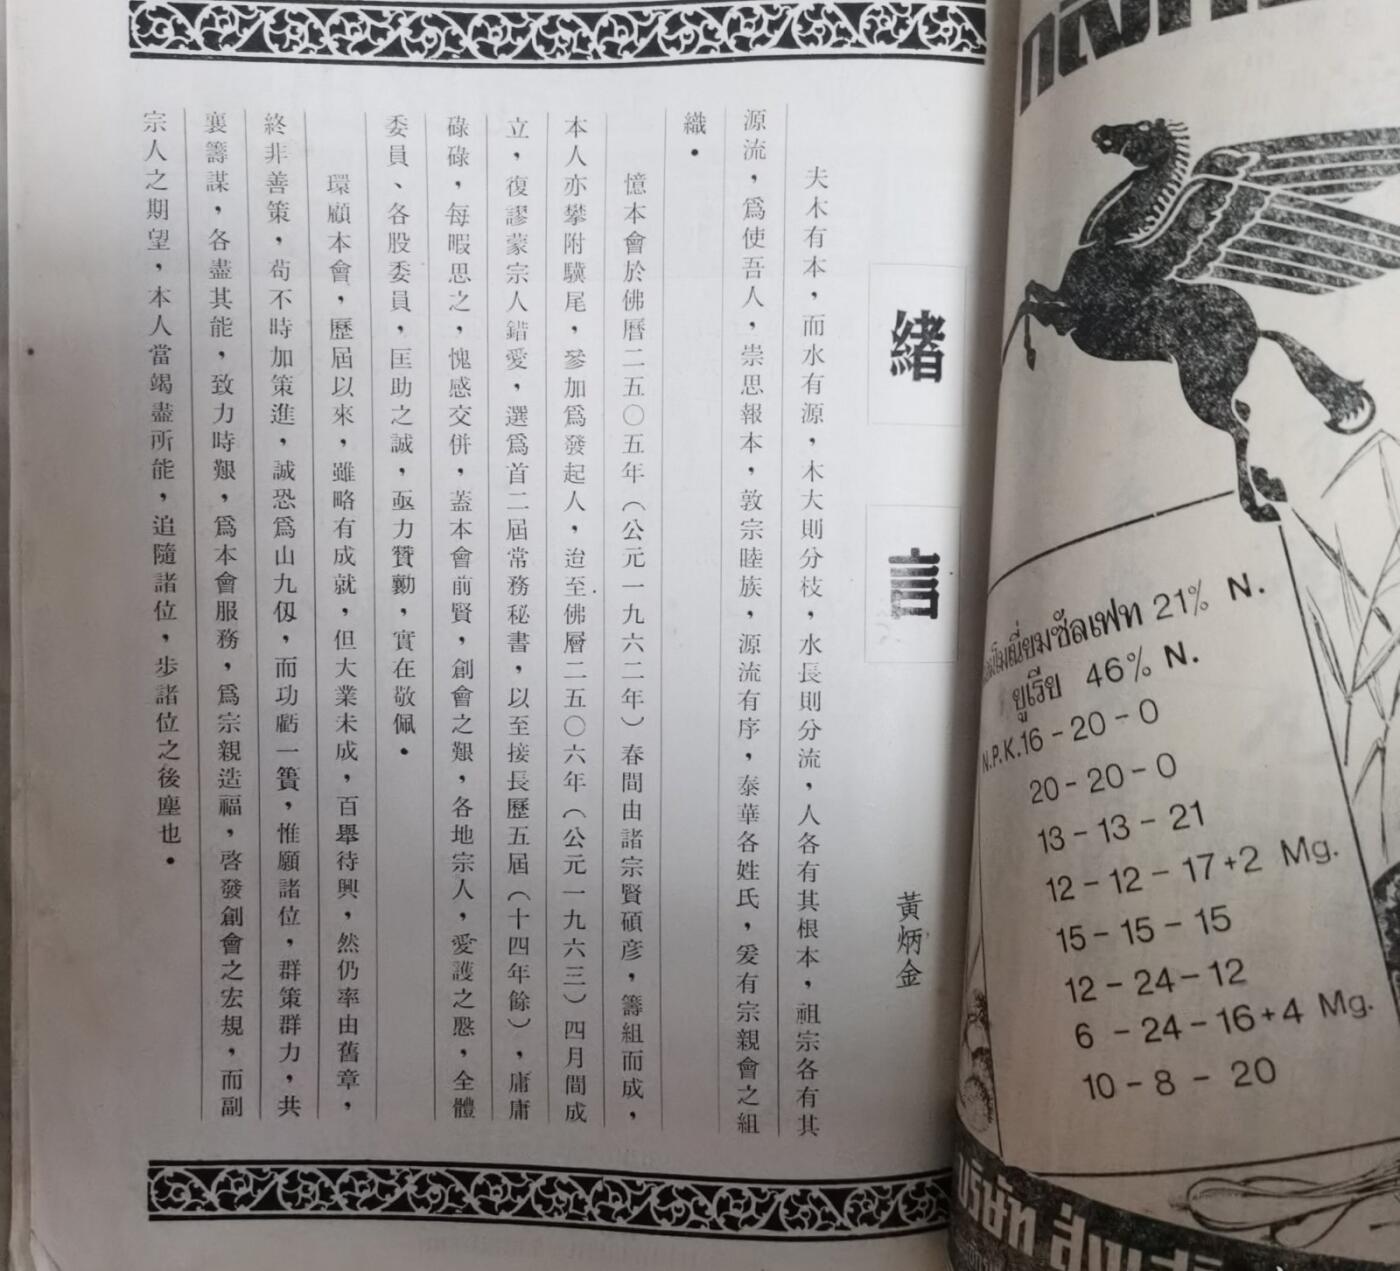 緒言
黃炳金
夫木有本，而水有源，木大則分枝，水長則分流，人各有其根本，祖宗各有其
源流，爲使吾人，崇思報本，敦宗睦族，源流有序，泰華各姓氏，爰有宗親會之組
織。
憶本會於佛曆二五〇五年（公元一九六二年）春間由諸宗賢碩彥，籌組而成，
本人亦攀附驥尾，參加爲發起人，迨至佛層二五〇六年（公元一九六三）四月間成
立，復謬蒙宗人錯愛，選爲首二屆常務秘書，以至接長歷五屆（十四年餘），庸庸
碌碌，每暇思之，愧感交併，蓋本會前賢，創會之艱，各地宗人，愛護之慇，全體
委員、各股委員，匡助之誠，亟力贊勷，實在敬佩。
環顧本會，歷屆以來，雖略有成就，但大業未成，百舉待興，然仍率由舊章，
終非善策，茍不時加策進，誠恐爲山九仭，而功虧一簣，惟願諸位，群策群力，共
襄籌謀，各盡其能，致力時艱，爲本會服務，爲宗親造福，啓發創會之宏規，而副
宗人之期望，本人當竭盡所能，追隨諸位，步諸位之後塵也。
21% N.
ยูเรีย 46% N.
N.P.K. 16-20-0
20-20-0
13-13-21
12-12-17+2 Mg.
15-15-15
12-24-12
6-24-16+4 Mg.
10-8-20
บริษัท